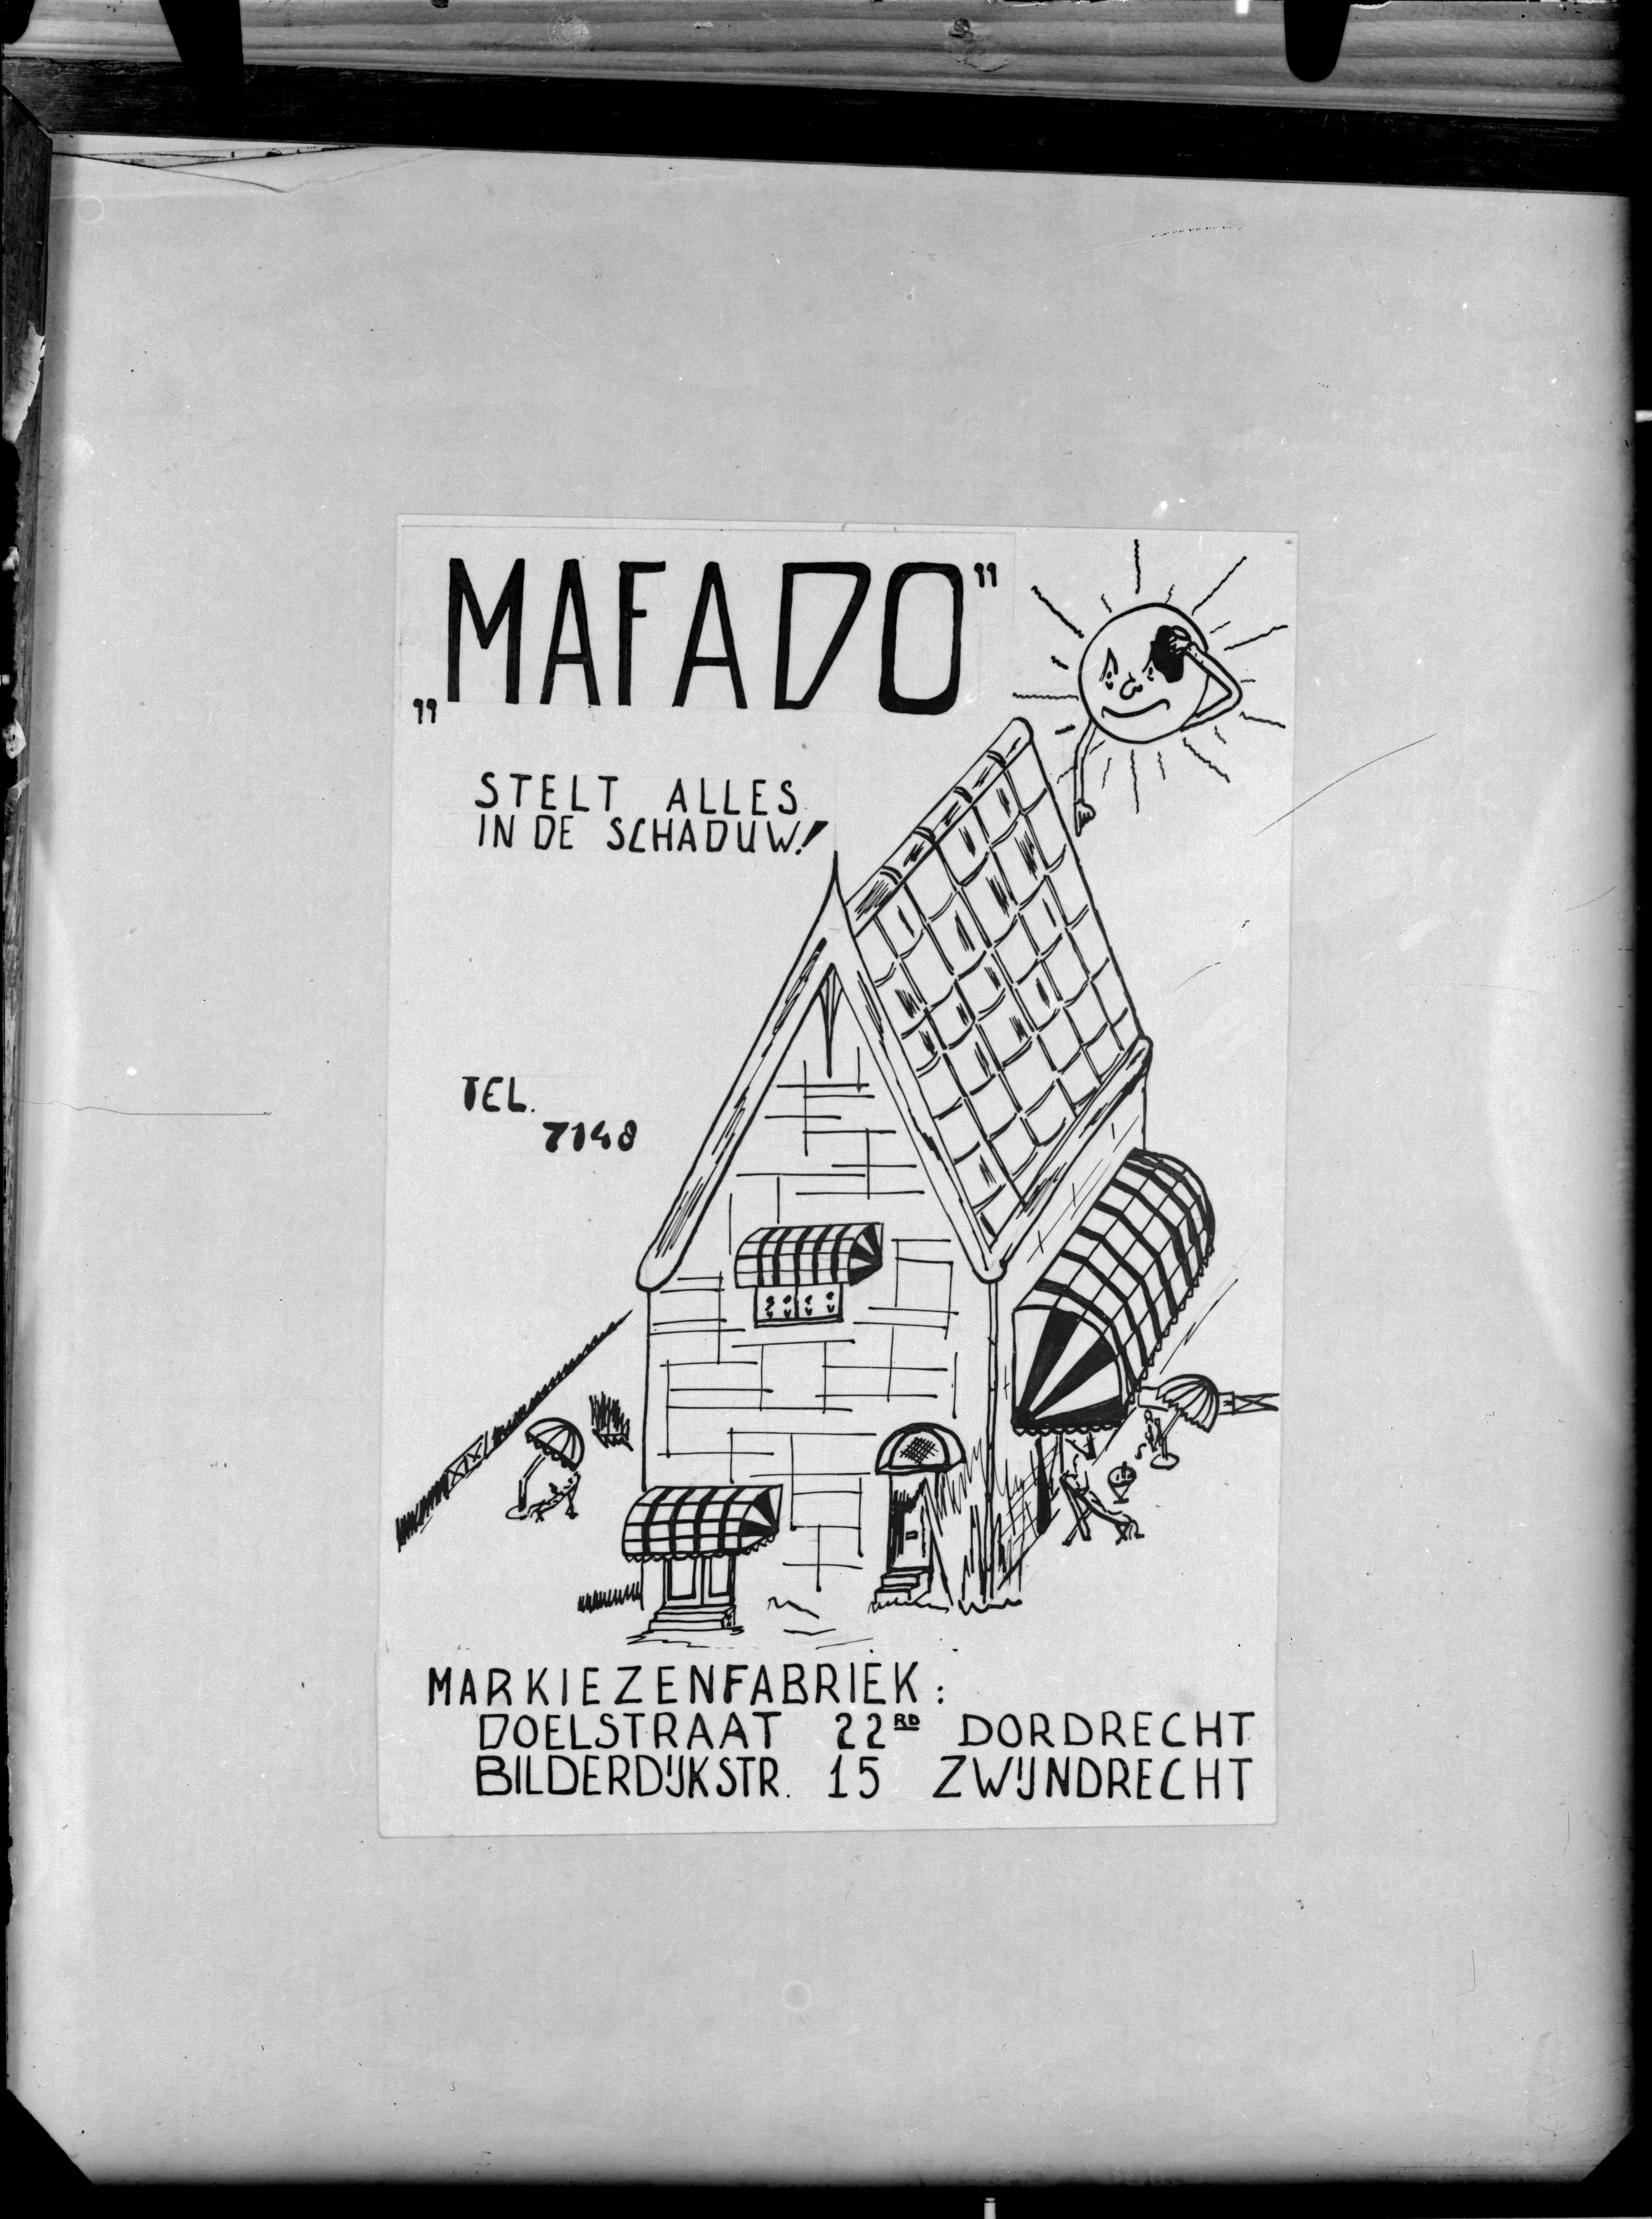 „MAFADO”
STELT ALLES
IN DE SCHADUW!
TEL.
7148
MARKIEZENFABRIEK:
DOELSTRAAT 22RD DORDRECHT
BILDERDIJKSTR. 15 ZWIJNDRECHT